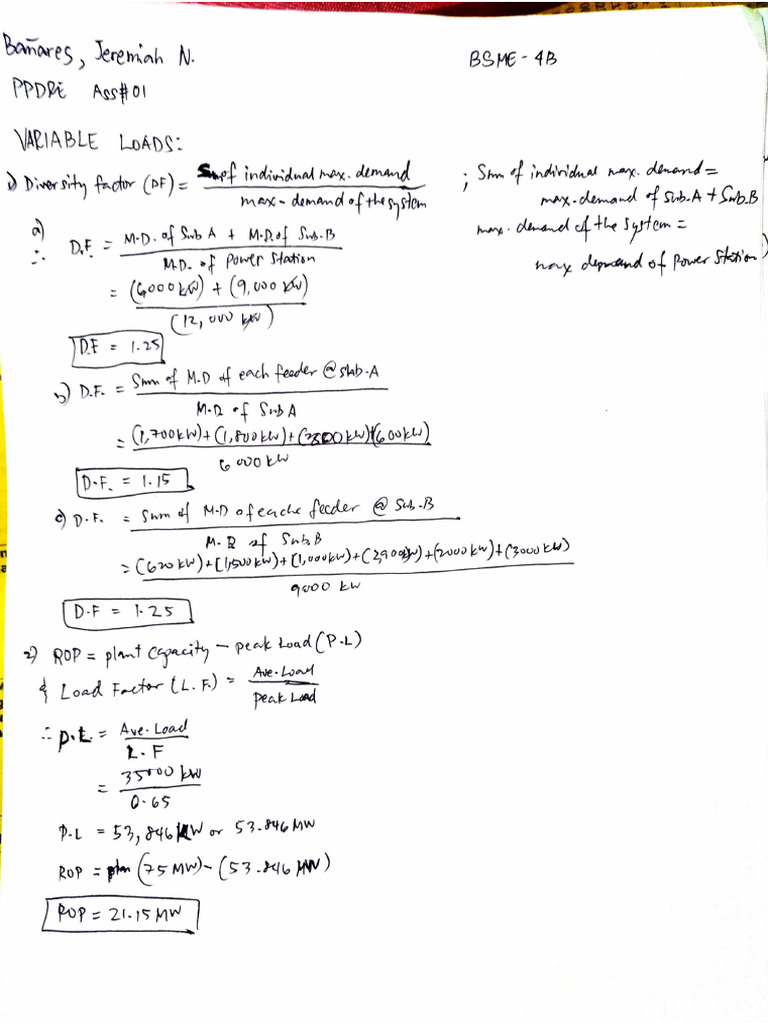 Bañares, Jeremiah N.
BSME - 4B
PPDRE Ass#01
VARIABLE LOADS:
1) Diversity factor (DF) = Sum of individual max. demand / max. demand of the system
; Sum of individual max. demand =
max. demand of Sub. A + Sub. B
max. demand of the system =
max demand of Power Station
a)
∴ D.F. = M.D. of Sub A + M.D. of Sub. B / M.D. of Power Station
= (6,000 kW) + (9,000 kW) / (12,000 kW)
D.F = 1.25
b) D.F. = Sum of M.D of each feeder @ sub.A / M.D. of Sub A
= (1,700kW)+(1,800kW)+(2800kW)+(600kW) / 6000kW
D.F. = 1.15
c) D.F. = Sum of M.D of each feeder @ Sub.B / M.D of Sub.B
= (620kW)+(1,500kW)+(1,000kW)+(2,900kW)+(2000kW)+(3000kW) / 9000 kW
D.F = 1.25
2) ROP = plant capacity - peak Load (P.L)
& Load Factor (L.F.) = Ave. Load / Peak Load
∴ P.L. = Ave. Load / L.F
= 35000 kW / 0.65
P.L = 53,846 kW or 53.846 MW
ROP = (75 MW) - (53.846 MW)
ROP = 21.15 MW